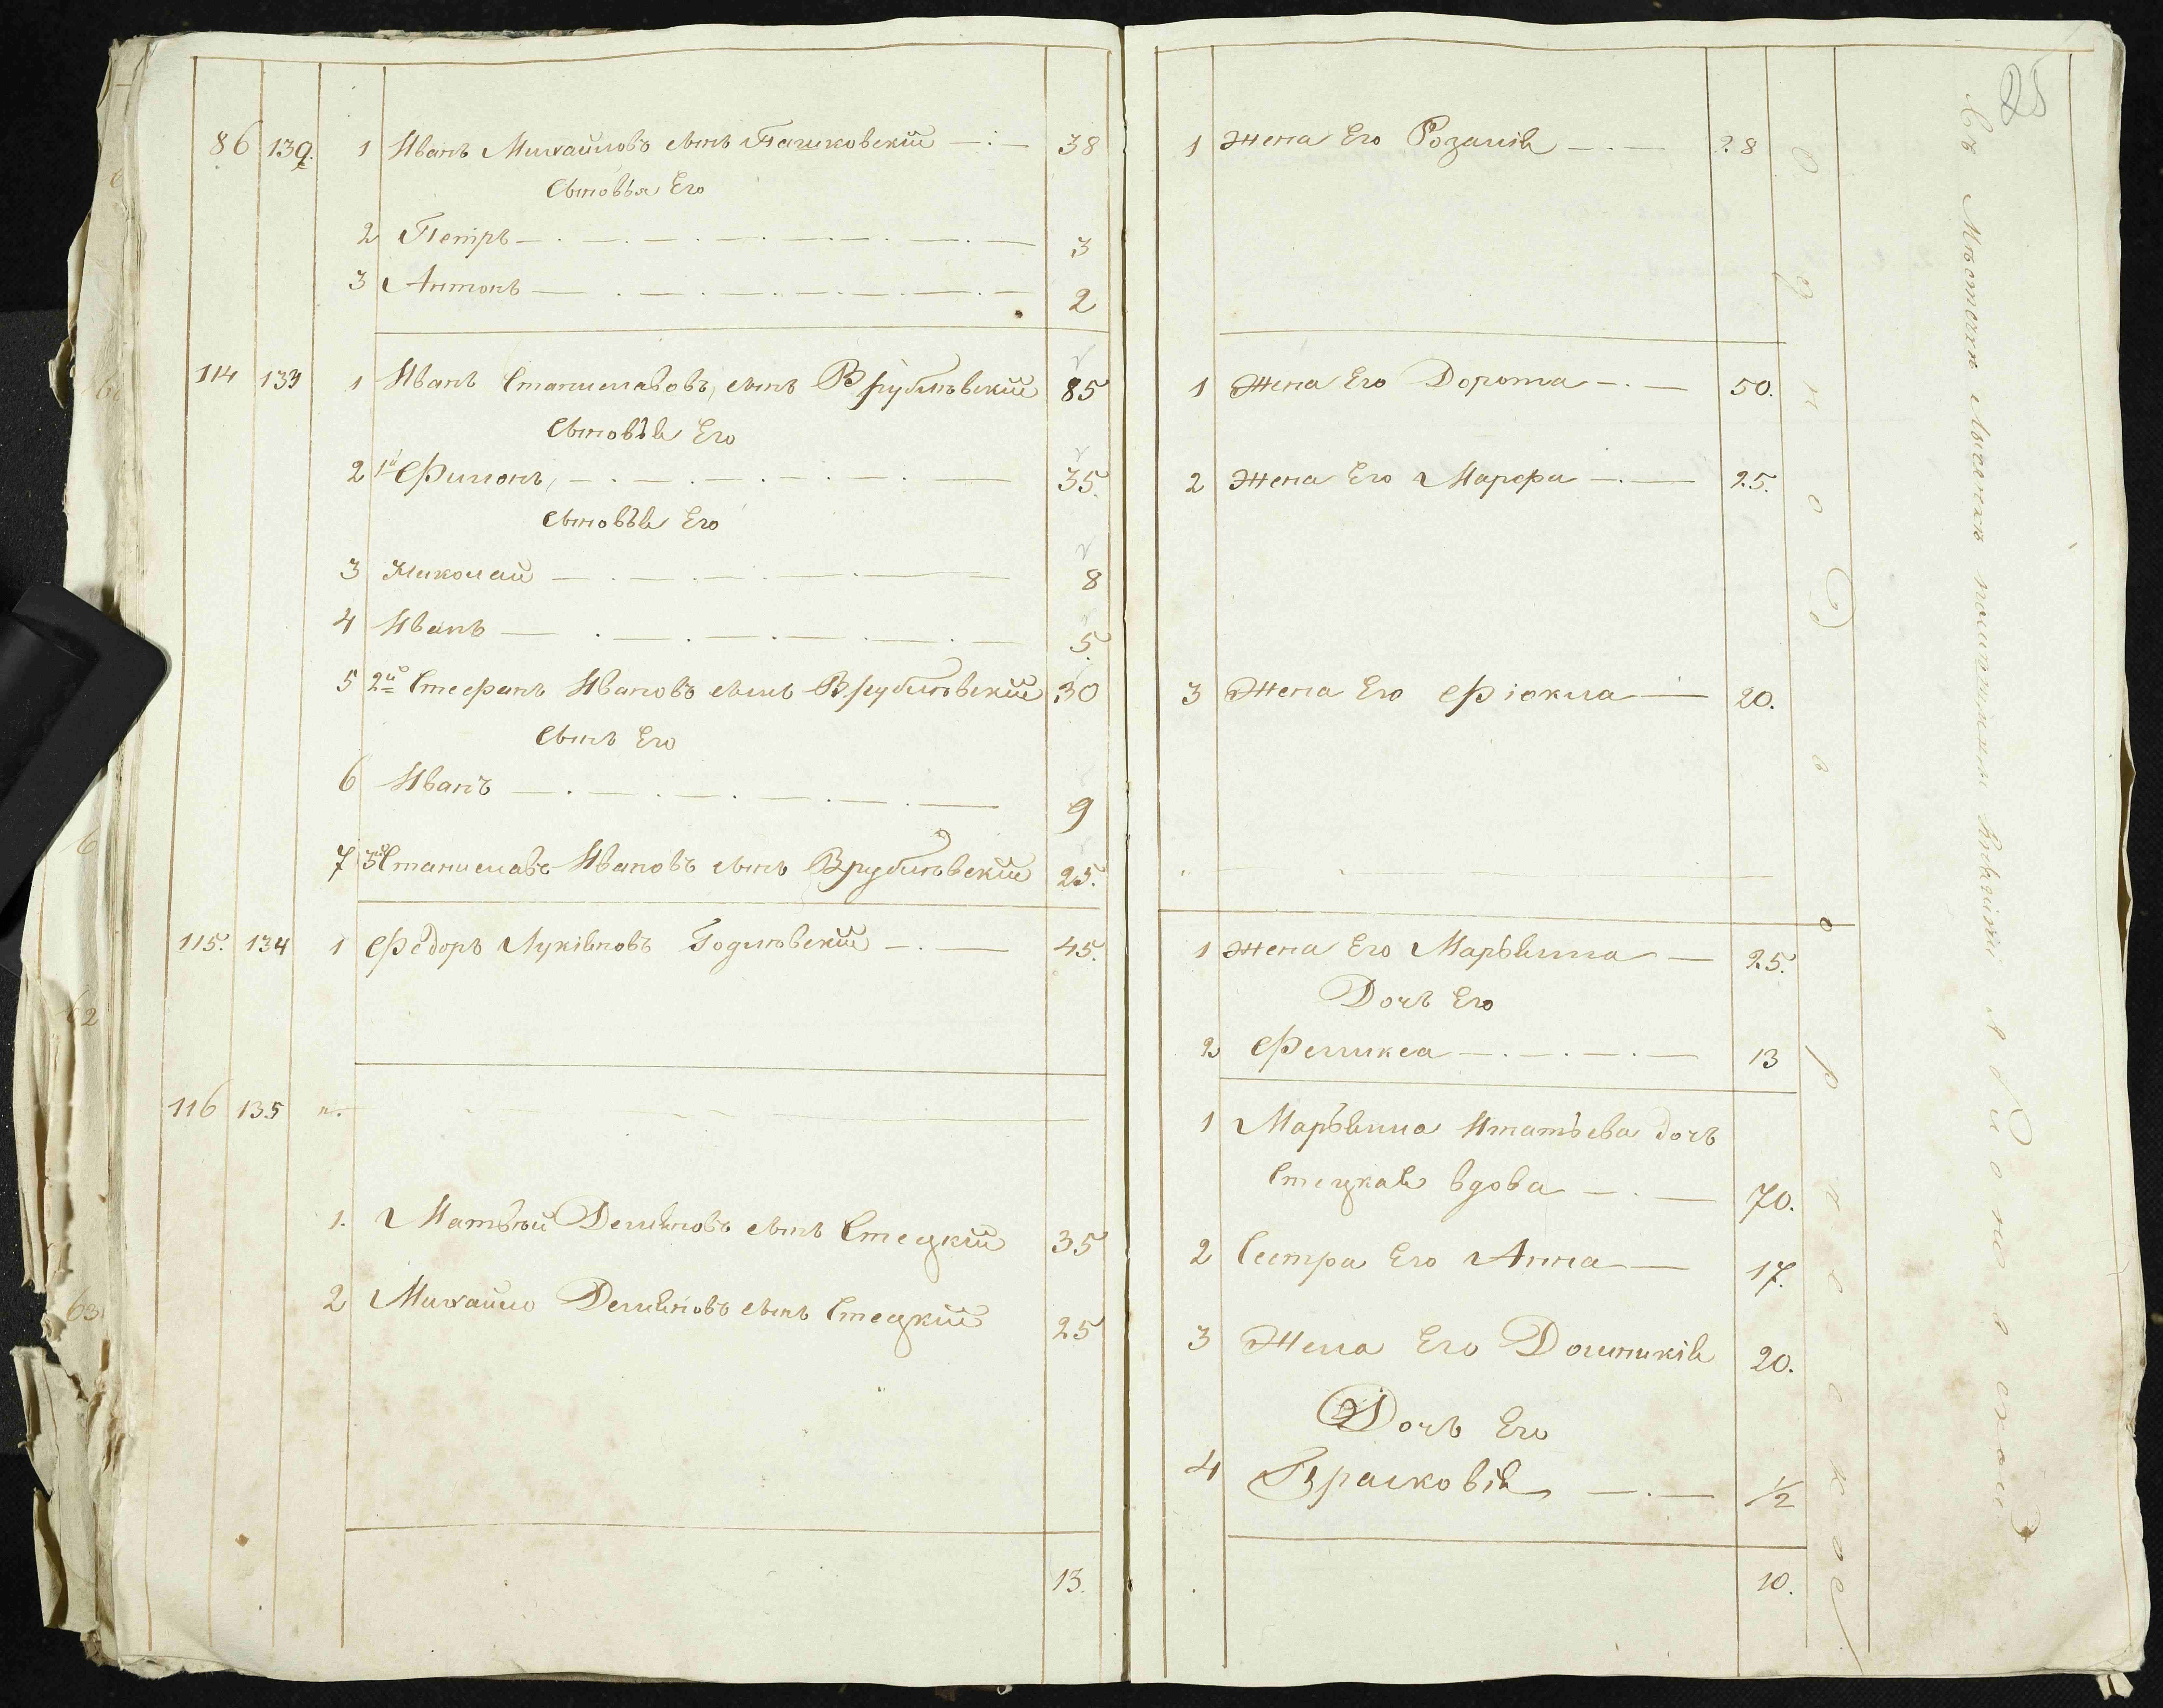 86 139. 1 Иванъ Михайловъ сынъ Пашковскій 38
Сыновья Его
2 Петръ 3
3 Антонъ 2
114 133 1 Иванъ Станиславовъ, сынъ Врублѣвскій 85
Сыновья Его
2 1й Филонъ, 35.
Сыновья Его
3 Николай 8
4 Иванъ 5.
5 2й Стефанъ Ивановъ сынъ Врублѣвскій 30
Сынъ Его
6 Иванъ 9
7 3й Станиславъ Ивановъ сынъ Врублѣвскій 25.
115. 134 1 Федоръ Лукіяновъ Годлѣвскій 45.
116 135
1. Матвѣй Демяновъ сынъ Стецкій 35
2 Михайло Демяновъ сынъ Стецкій 25
13.
25
1 Жена Его Розалія 28
1 Жена Его Дорота 50.
2 Жена Его Марфа 25.
3 Жена Его Фіокла 20.
1 Жена Его Марьянна 25.
Дочь Его
2 Феликса 13
1 Марьянна Игнатьева дочь
Стецкая вдова 70.
2 Сестра Его Анна 17.
3 Жена Его Доминикія 20.
Дочь Его
4 Прасковія 1/2
10.
Въ Мѣстечкѣ